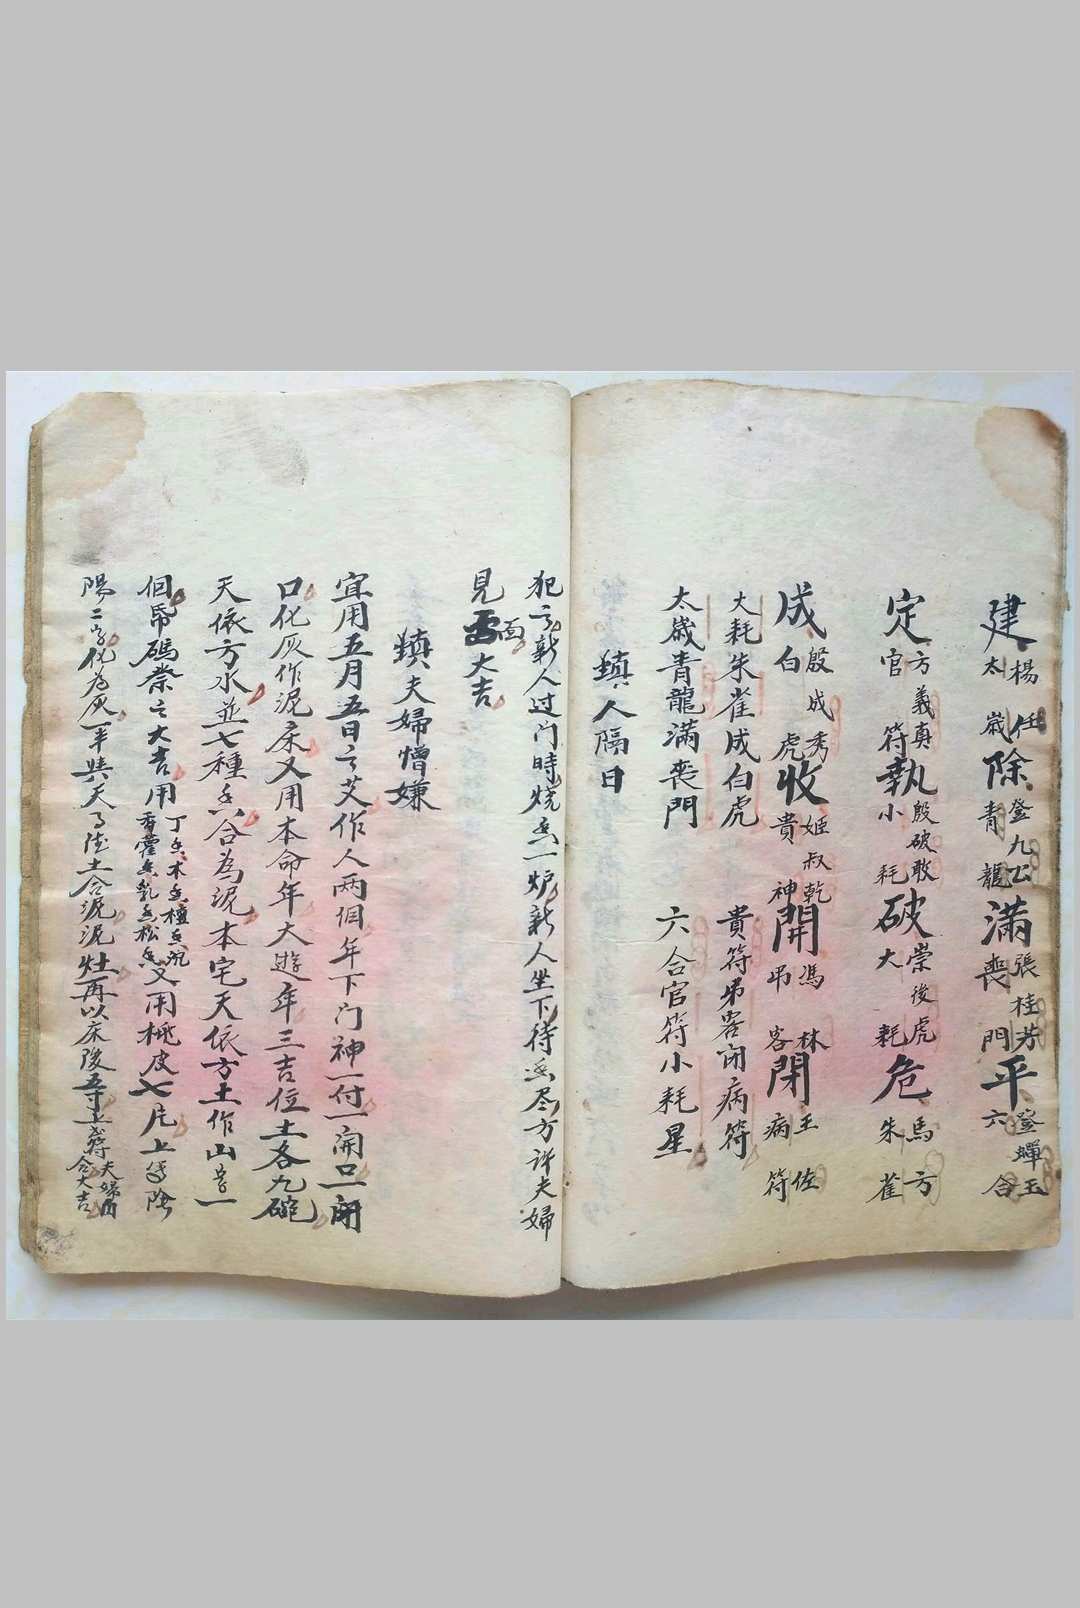 建 楊任 太歲 除 登九公 青龍 滿 張桂芳 喪門 平 登蟬玉 六合
定 方義真 官符 執 殷破敗 小耗 破 崇後虎 大耗 危 馬方 朱雀
成 殷成秀 白虎 收 姬叔乾 貴神 開 馮林 吊客 閉 王佐 病符
大耗朱雀成白虎 貴符吊客閉病符
太歲青龍滿喪門 六合官符小耗星
鎮人隔日
犯之新人过门時燒香一炉新人坐下待香尽方許夫婦
見面大吉
鎮夫婦憎嫌
宜用五月五日之艾作人两個年下门神一付一開口一閉
口化灰作泥床又用本命年大遊年三吉位土各九碗
天依方水並七種香合為泥本宅天依方土作山羊一
個帛碼祭之大吉用 丁香木香檀香沉香藿香乳香松香 又用桃皮七片上写陰
陽二字化為灰一半與天月德土合泥泥灶再以床後 夫婦 合大吉